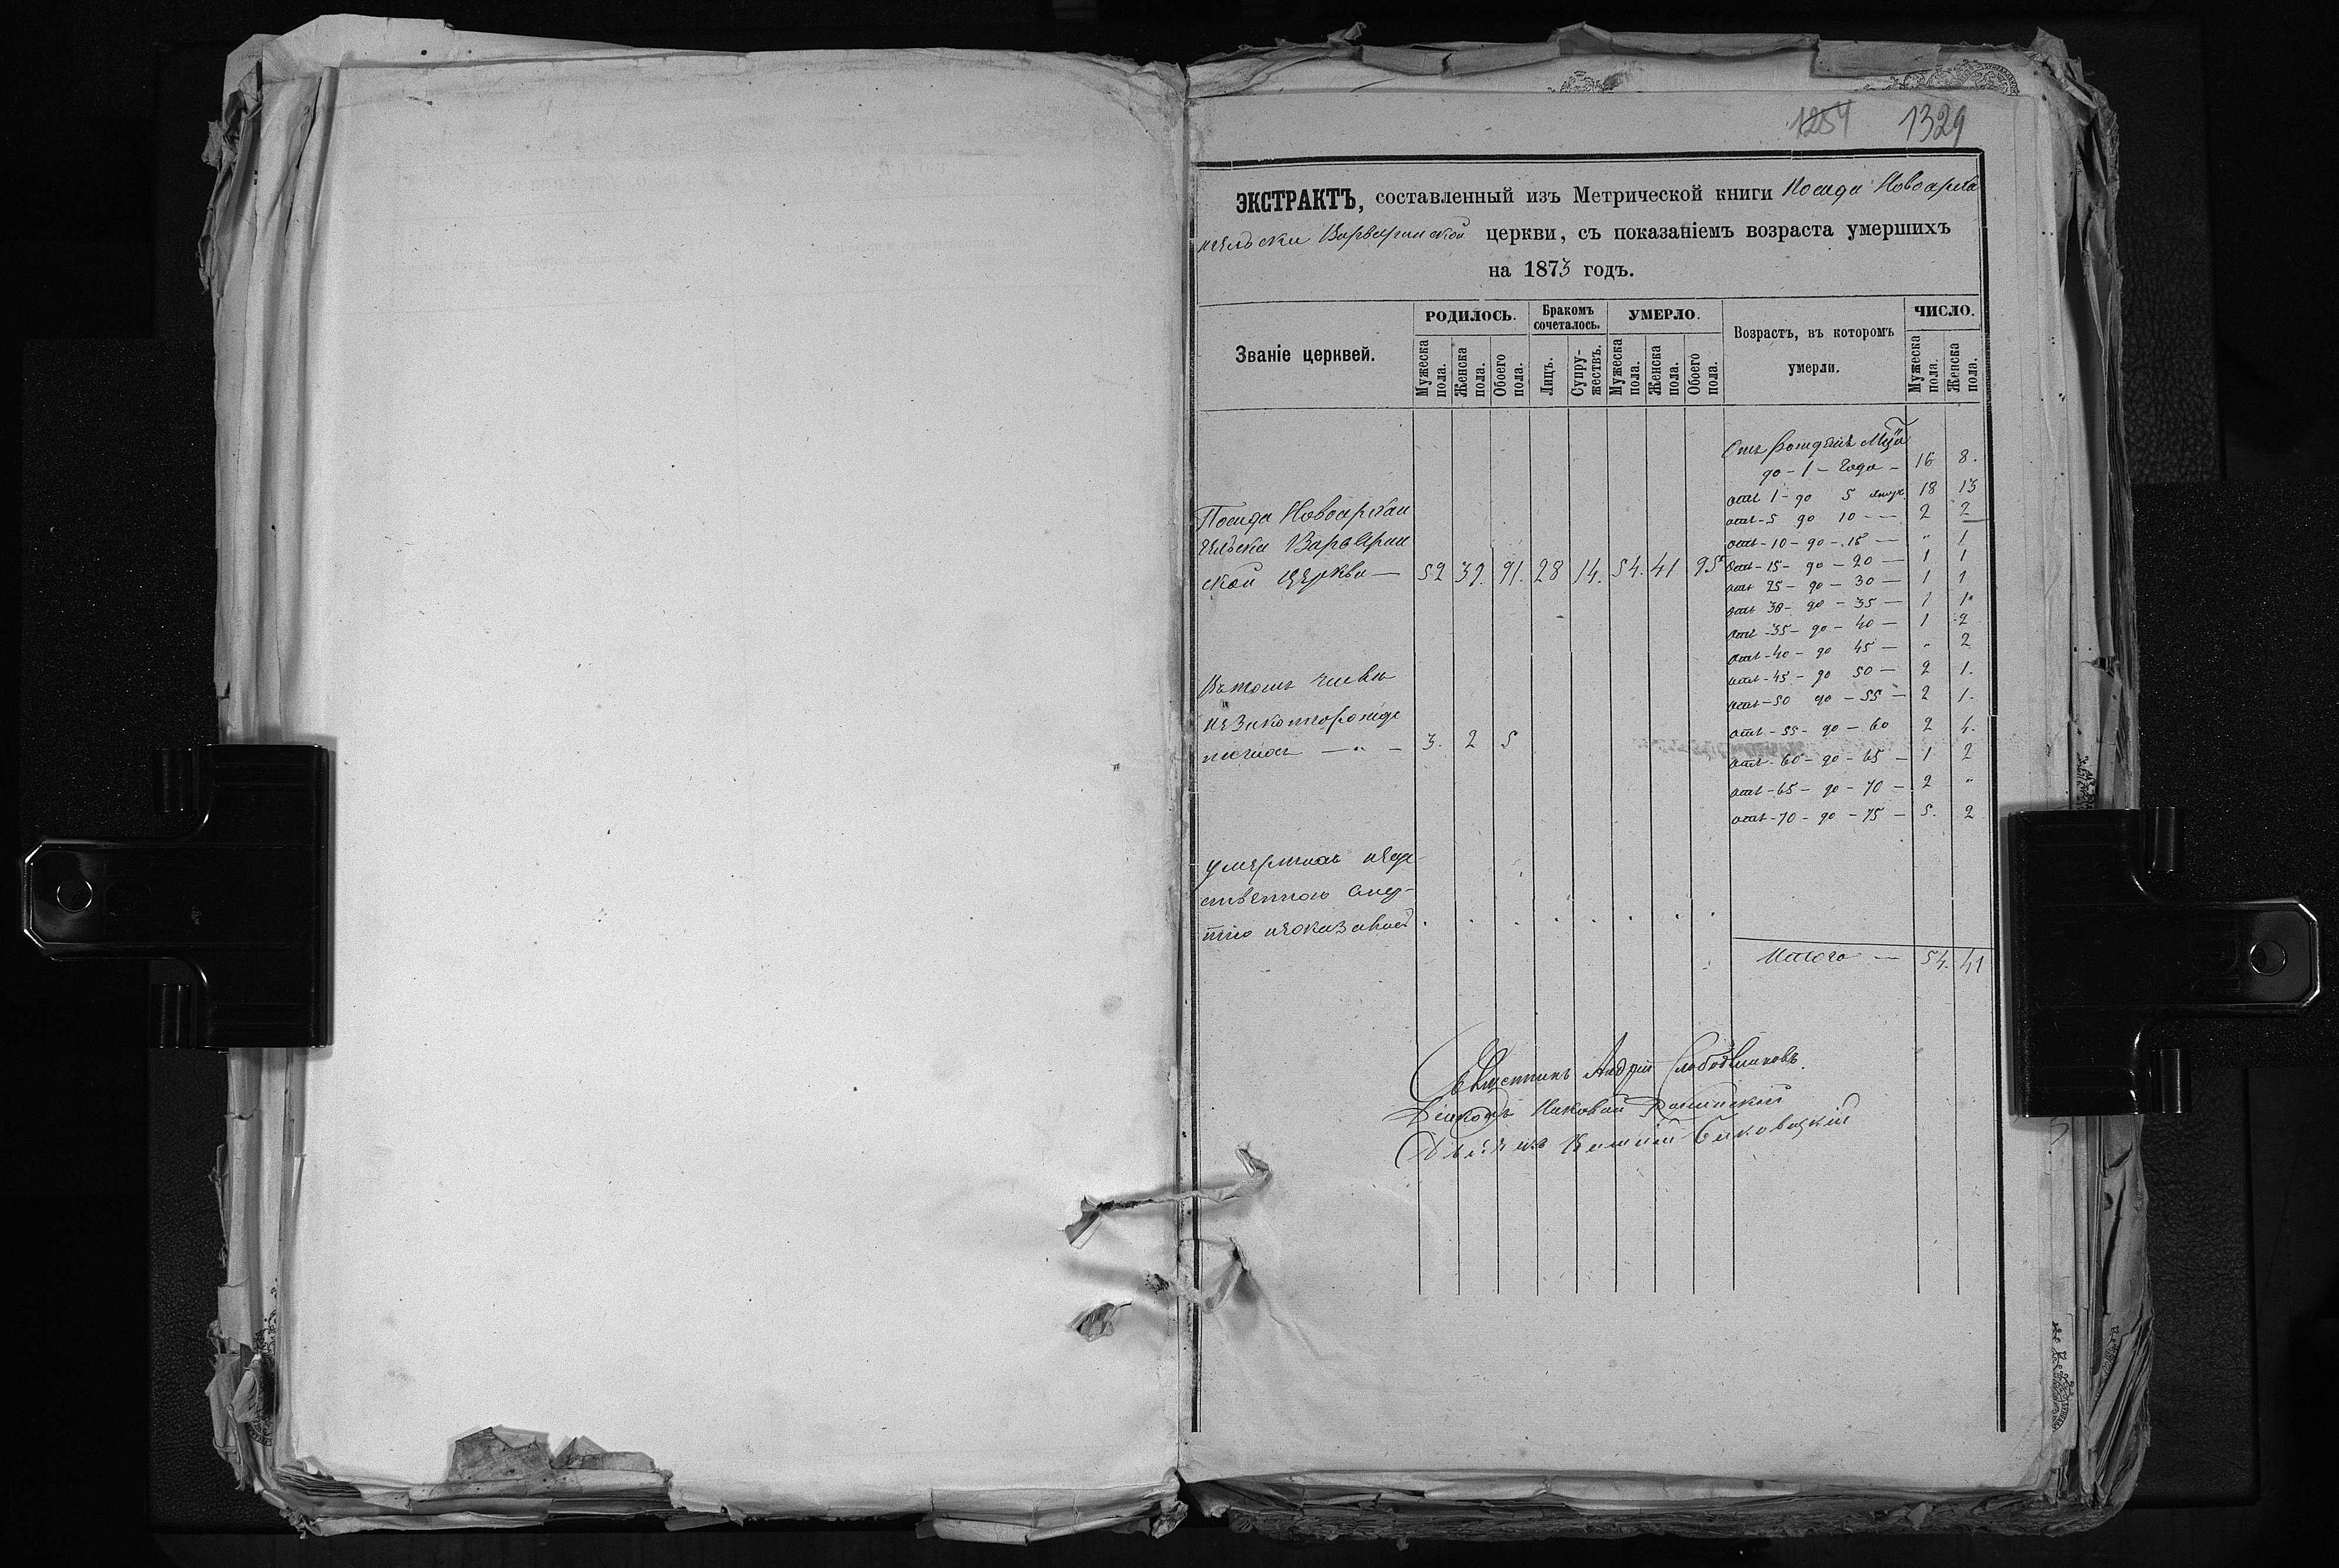 1254 1329
ЭКСТРАКТЪ, составленный изъ Метрической книги Посада Новоарха
нгельска Варваринской церкви, съ показаніемъ возраста умершихъ
на 1873 годъ.
Званіе церквей.
РОДИЛОСЬ.
Бракомъ сочеталось.
УМЕРЛО.
Возрастъ, въ которомъ умерли.
ЧИСЛО.
Мужеска пола.
Женска пола.
Обоего пола.
Лицъ.
Супру-жествъ.
Мужеска пола.
Женска пола.
Обоего пола.
Мужеска пола
Женска пола.
Отъ рожденія
до - 1 - года - 16 8.
отъ 1 - до 5 18 13
отъ - 5 до 10 - - 2 2
отъ - 10 - до - 15 - " 1
отъ - 15 - до - 20 - 1 1
отъ 25 - до - 30 - 1 1
отъ 30 - до - 35 - 1 1
отъ - 35 - до - 40 - 1 2
отъ - 40 - до 45 - " 2
отъ - 45 - до 50 - 2 1.
отъ - 50 до - 55 - 2 1.
отъ - 55 - до - 60 2 4.
отъ - 60 - до - 65 - 1 2
отъ - 65 - до - 70 - 2 "
отъ - 70 - до - 75 - 5. 2
Итого - 54. 41
Посада Новоархан
гельска Варварин
ской церкви — 52 39. 91. 28 14. 54. 41 95
Въ томъ числѣ
незаконнорожде
нныхъ — " - 3. 2 5
умершихъ неде
ственною смер-
тію неоказалось
Священникъ Андрей Слободяниковъ.
Діаконъ